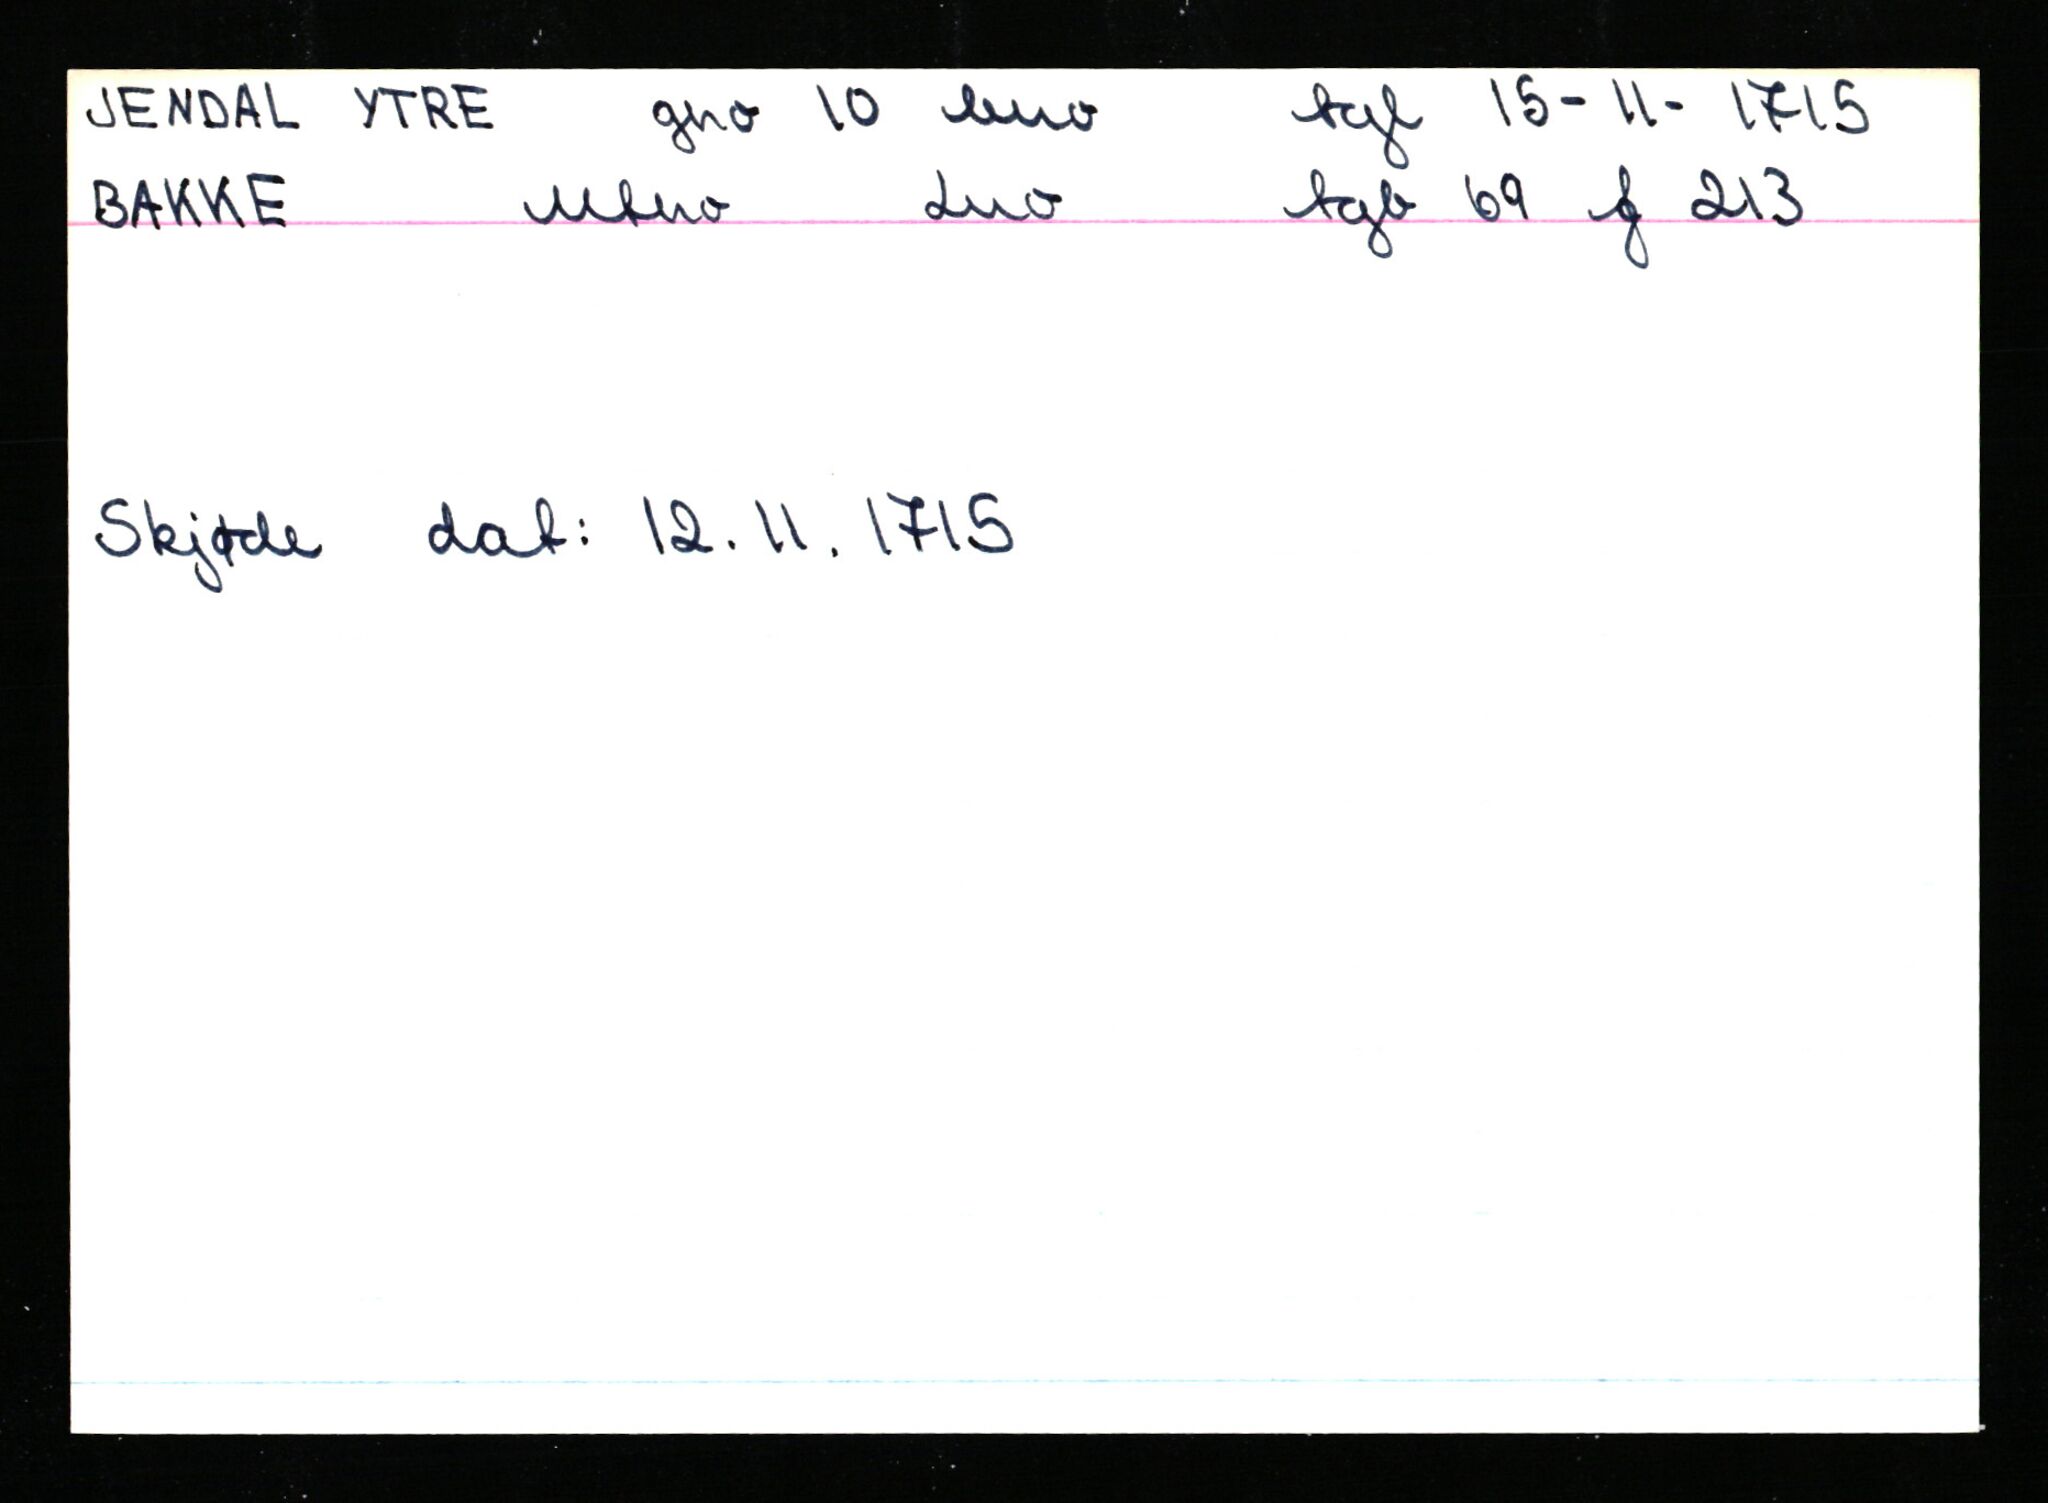 JENDAL YTRE gno 10 bno tgl 15-11-1715
BAKKE Mtno Lno tgb 69 f 213
Skjøde dat: 12.11.1715